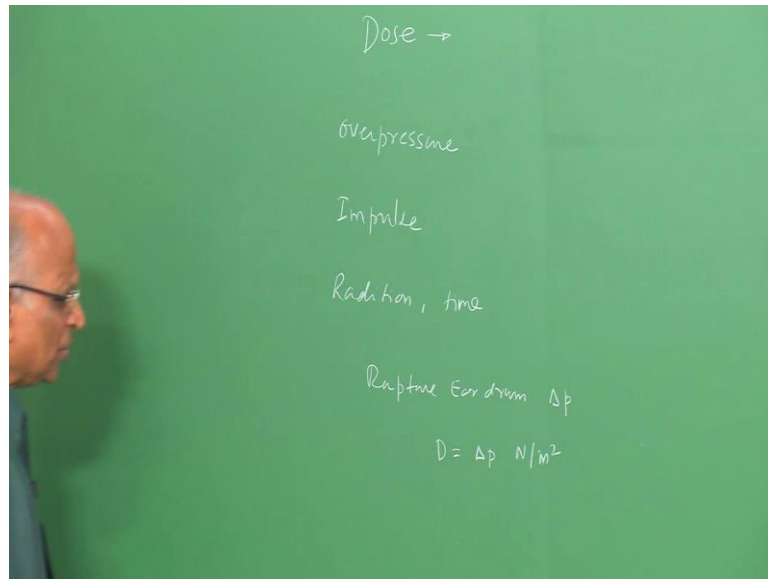 Dose →
overpressure
Impulse
Radition, time
Rupture Eardrum Δp
D = Δp N/m²